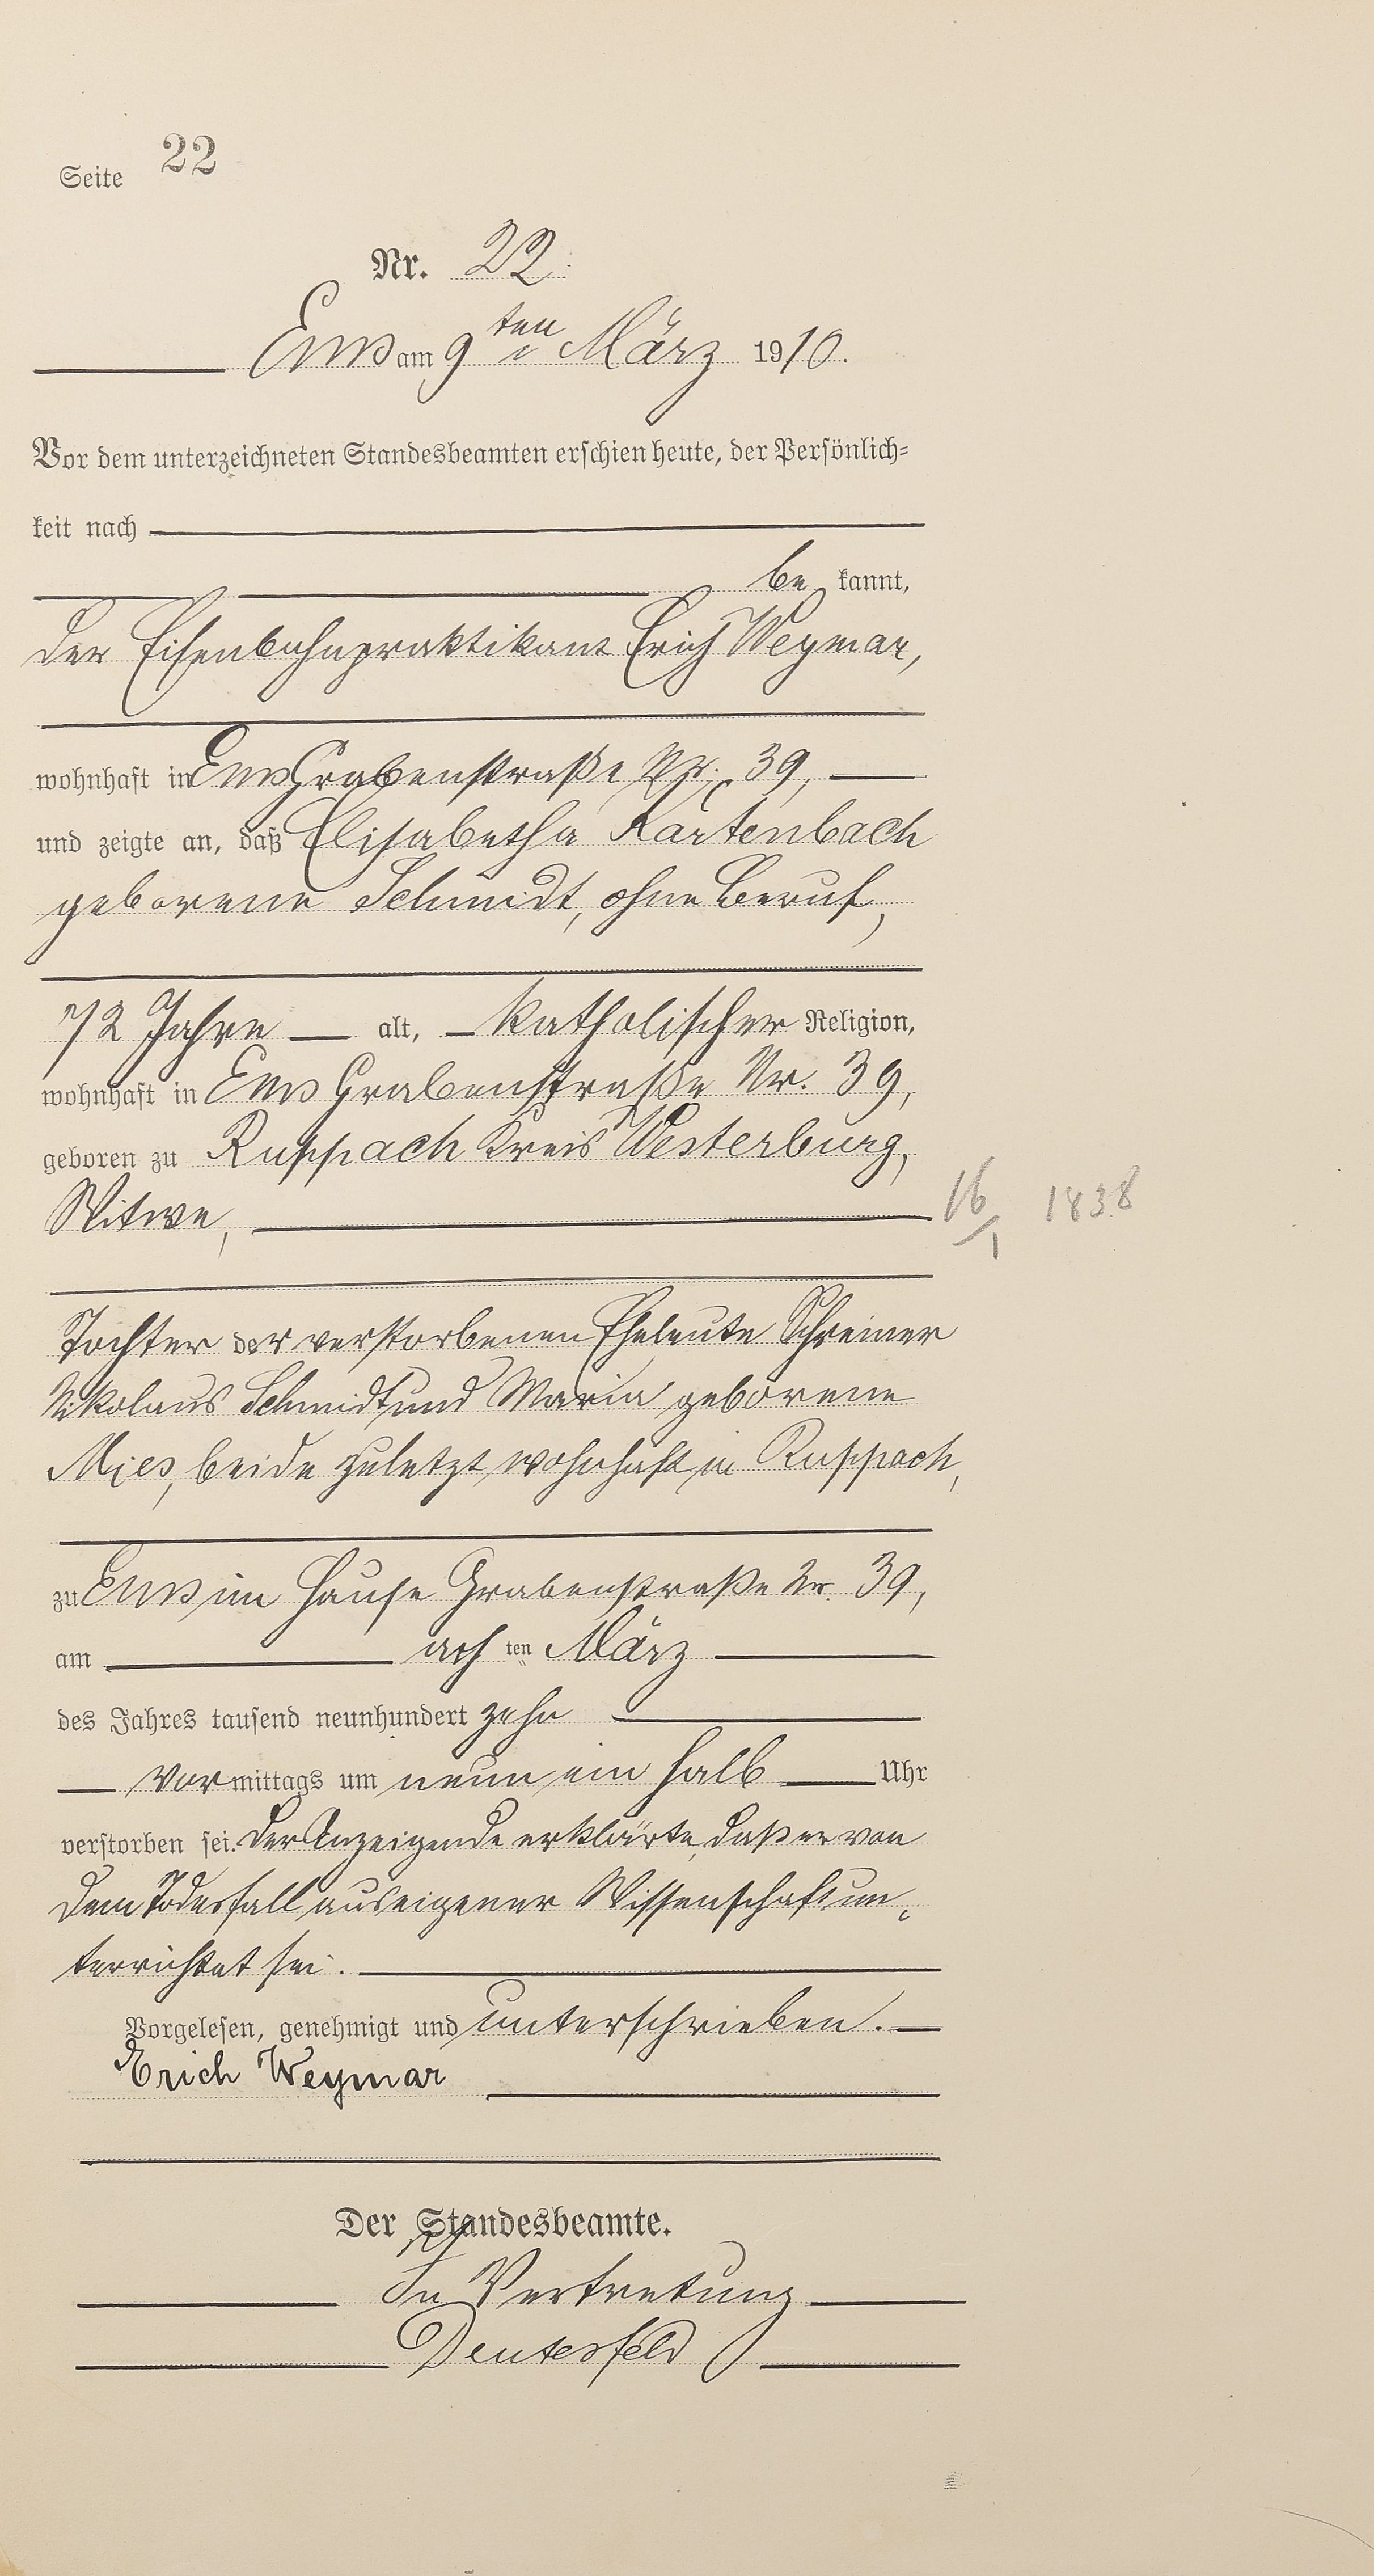 Seite 22
Nr. 22
Ems am 9ten März 1910.
Vor dem unterzeichneten Standesbeamten erschien heute, der Persönlich-
keit nach
be kannt,
der Eisenbahnpraktikant Erich Weymar,
wohnhaft in Ems Grabenstraße Nr. 39,
und zeigte an, daß Elisabetha Kartenbach
geborene Schmidt, ohne Beruf,
72 Jahre alt, katholischer Religion,
wohnhaft in Ems Grabenstraße Nr. 39,
geboren zu Ruppach Kreis Westerburg,
Witwe, 16/1 1838
Tochter der verstorbenen Eheleute Schreiner
Nikolaus Schmidt und Maria geborene
Mies, beide zuletzt wohnhaft in Ruppach,
zu Ems im Hause Grabenstraße Nr. 39,
am ach ten März
des Jahres tausend neunhundert zehn
Vor mittags um neun ein halb Uhr
verstorben sei. Der Anzeigende erklärte, daß er von
dem Todesfall aus eigener Wissenschaft un-
terrichtet sei.
Vorgelesen, genehmigt und unterschrieben.
Erich Weymar
Der Standesbeamte.
In Vertretung